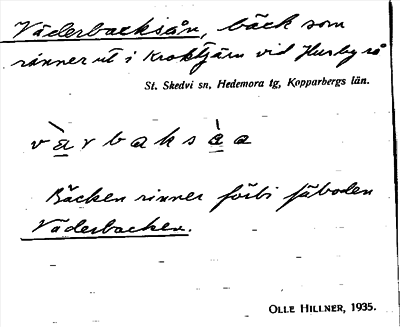 Väderbacksån, bäck som
rinner ut i Kroktjärn vid Husbyrå
St. Skedvi sn, Hedemora tg, Kopparbergs län.
v à̱ r b a k s à̱ a
Bäcken rinner förbi fäboden
Väderbacken.
OLLE HILLNER, 1935.